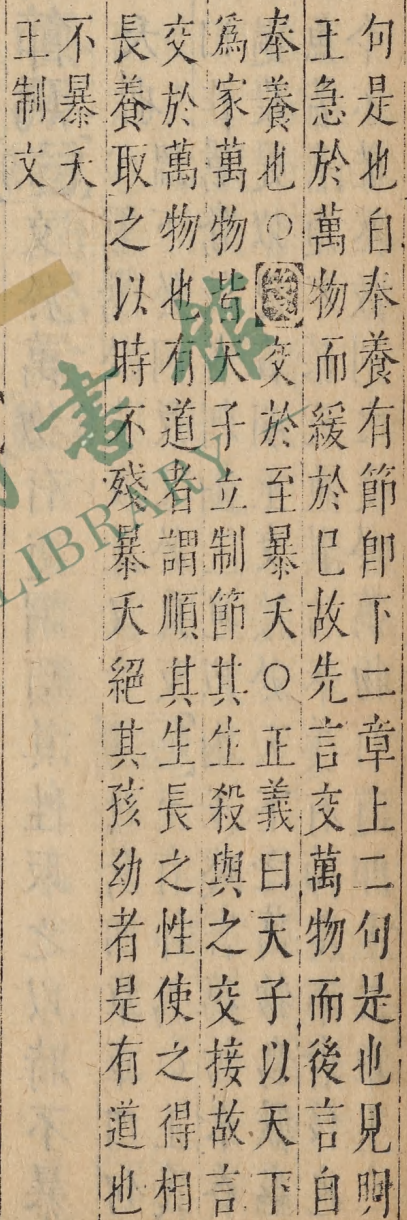 句是也自奉養有節即下二章上二句是也見明
王急於萬物而緩於已故先言交萬物而後言自
奉養也○疏交於至暴夭○正義曰天子以天下
爲家萬物皆天子立制節其生殺與之交接故言
交於萬物也有道者謂順其生長之性使之得相
長養取之以時不殘暴夭絕其孩幼者是有道也
不暴夭
王制文
書館
LIBRARY